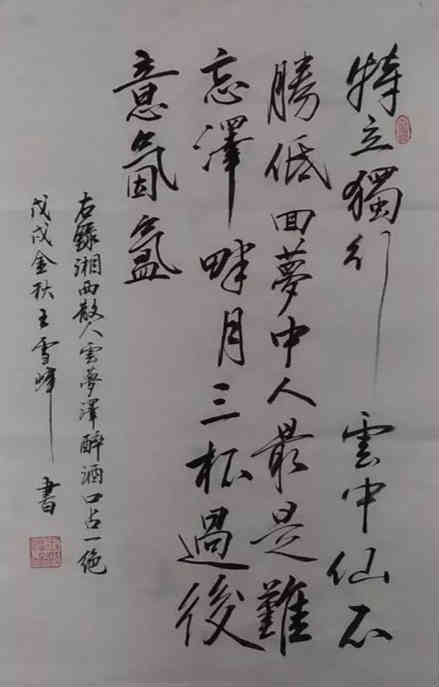 特立獨行 雲中仙不
勝低回夢中人最是難
忘澤畔月三杯過後
意氤氳
右錄湘西散人雲夢澤醉酒口占一絕
戊戌金秋王雪峰書